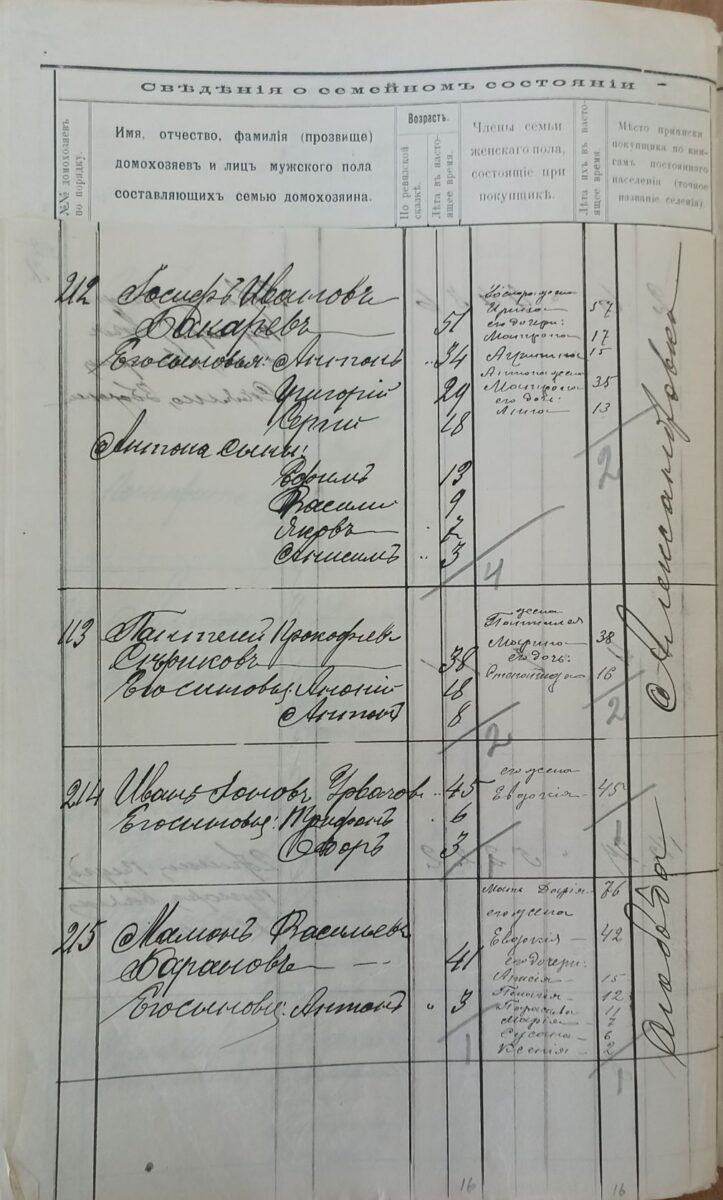 СВѢДѢНІЯ О СЕМЕЙНОМЪ СОСТОЯНІИ
№№ домохозяевъ по порядку.
Имя, отчество, фамилія (прозвище)
домохозяевъ и лицъ мужского пола
составляющихъ семью домохозяина.
Возрастъ.
По ревизской сказкѣ.
Лѣта въ настоящее время.
Члены семьи
женскаго пола,
состоящіе при
покупщикѣ.
Лѣта ихъ въ настоящее время.
Мѣсто приписки
покупщика по книгамъ
постояннаго
населенія (точное
названіе селенія)
212 Іосифъ Ивановъ
51
Его сыновья: Антонъ 34
Григорій 29
Сергій 18
Антона сыны:
Ефимъ 13
Василій 9
Яковъ 7
Анисимъ 3
4
жена
Ирина 57
его дочери:
Матрона 17
15
Антона жена
Матрона 35
его дочь:
Анна 13
2
Александровка
113 Пантелей Прокофьевъ
38
Его сыновья: 18
Антонъ 8
2
жена
Марина 38
его дочь:
Степанида 16
2
214 Иванъ 45
Его сыновья: Трифонъ 6
3
его жена
Евдокія 45
1
Слобода
215 Мамонъ Васильевъ
Барановъ 41
Его сыновья: Антонъ 3
1
Мать Дарія 76
его жена
Евдокія 42
его дочери:
Анисія 15
Пелагія 12
11
Марія 7
Сусана 6
Ксенія 2
1
16
16